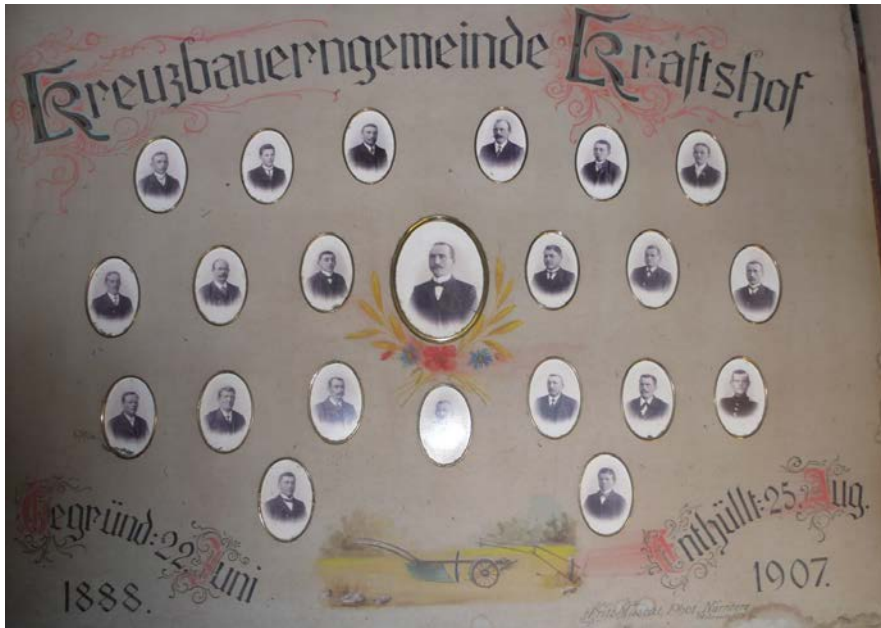 Kreuzbauerngemeinde Kraftshof
Gegründ: 22. Juni
1888.
Enthüllt: 25. Aug.
1907.
Phot. Nürnberg